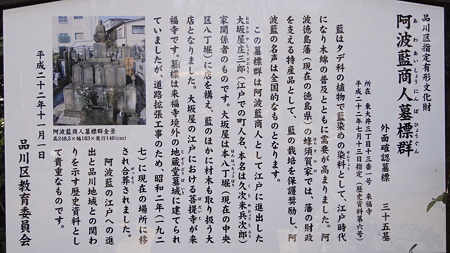 品川区指定有形文化財
阿波藍商人墓標群
あわあいしょうにんぼひょうぐん
外面確認墓標 三十五基
所在 東大井三丁目十三番一号 来福寺
平成二十二年七月十三日指定(歴史資料第六号)
藍はタデ科の植物で藍染めの染料として、江戸時代
になり木綿の普及とともに需要が高まりました。阿
波徳島藩(現在の徳島県)の蜂須賀家では、藩の財政
を支える特産品として、藍の栽培を保護奨励し、阿
波藍の名声は全国的なものとなります。
この墓標群は阿波藍商人として江戸に進出した
大坂屋庄三郎(江戸での町人名、本名は久次米兵次郎)
家関係者のものです。大坂屋は本八丁堀(現在の中央
区八丁堀)に店を構え、藍のほかに材木も取り扱う大
店となりました。大坂屋の江戸における菩提寺が来
福寺です。墓標は来福寺境外の地蔵堂墓域に建てられ
ていましたが、道路拡張工事のため昭和二年(一九二
七)に現在の場所に移
され合葬されました。
阿波藍の江戸への進
出と品川地域との関わ
りを示す歴史資料とし
て貴重なものです。
阿波藍商人墓標群全景
高248.5×幅183×奥行140(cm)
平成二十二年十一月一日
品川区教育委員会